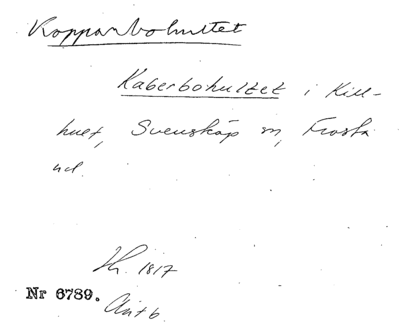 Kopparbohultet
Kaberbohultet i Kill-
hult, Svensköp sn, Frosta
hd.
1817
Nr 6789.